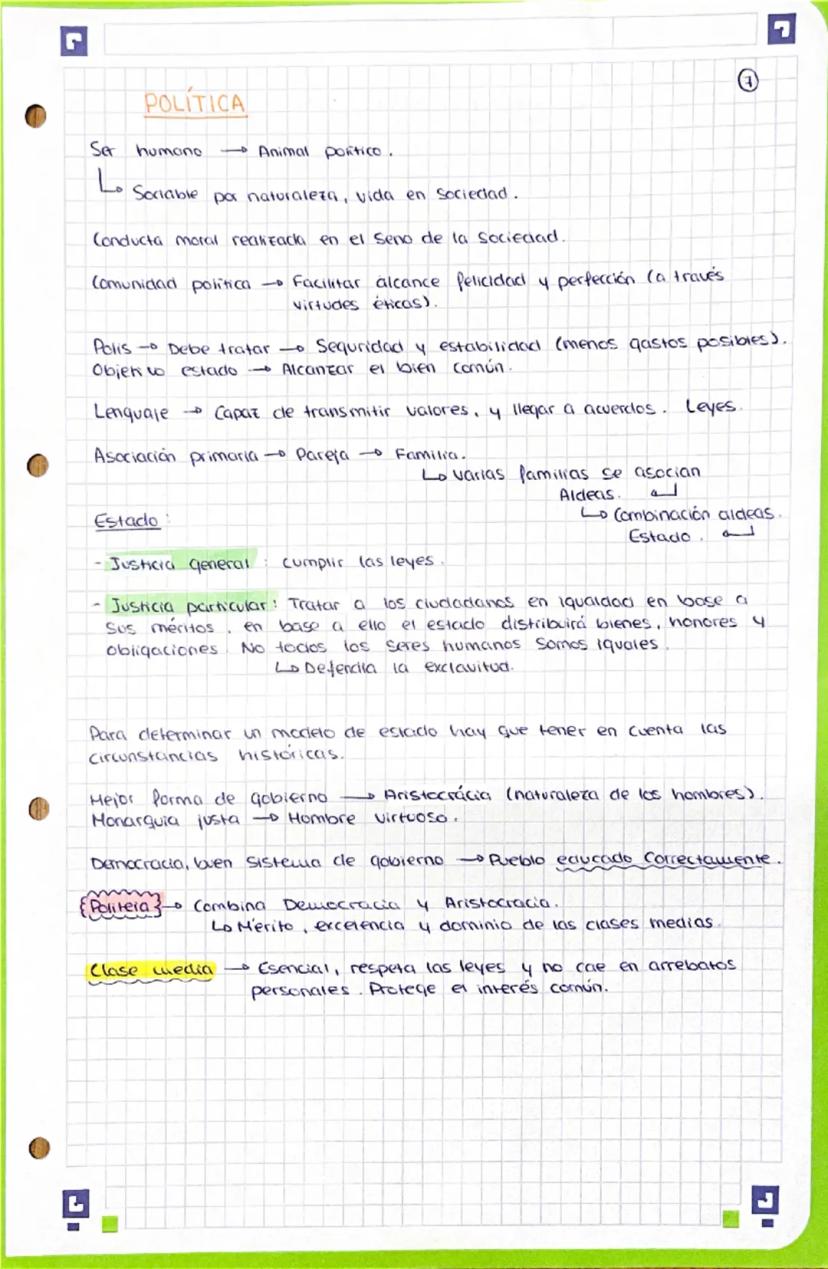 7
POLÍTICA
Ser humano → Animal político.
↳ Sociable por naturaleza, vida en sociedad.
Conducta moral realizada en el seno de la sociedad.
Comunidad política → Facilitar alcance felicidad y perfección (a través
virtudes éticas).
Polis → Debe tratar → Seguridad y estabilidad (menos gastos posibles).
Objetivo estado → Alcanzar el bien común.
Lenguaje → Capaz de transmitir valores, y llegar a acuerdos. Leyes.
Asociación primaria → Pareja → Familia.
↳ Varias familias se asocian
Aldeas. ↲
↳ Combinación aldeas.
Estado: 
Estado. ↲
- Justicia general: cumplir las leyes.
- Justicia particular: Tratar a los ciudadanos en igualdad en base a
sus méritos, en base a ello el estado distribuirá bienes, honores y
obligaciones. No todos los seres humanos somos iguales.
↳ Defendía la exclavitud.
Para determinar un modelo de estado hay que tener en cuenta las
circunstancias históricas.
Mejor forma de gobierno → Aristocrácia (naturaleza de los hombres).
Monarquía justa → Hombre virtuoso.
Democracia, buen sistema de gobierno → Pueblo educado correctamente.
{Politeia} → Combina Democracia y Aristocracia.
↳ Mérito, excelencia y dominio de las clases medias.
Clase media → Esencial, respeta las leyes y no cae en arrebatos
personales. Protege el interés común.